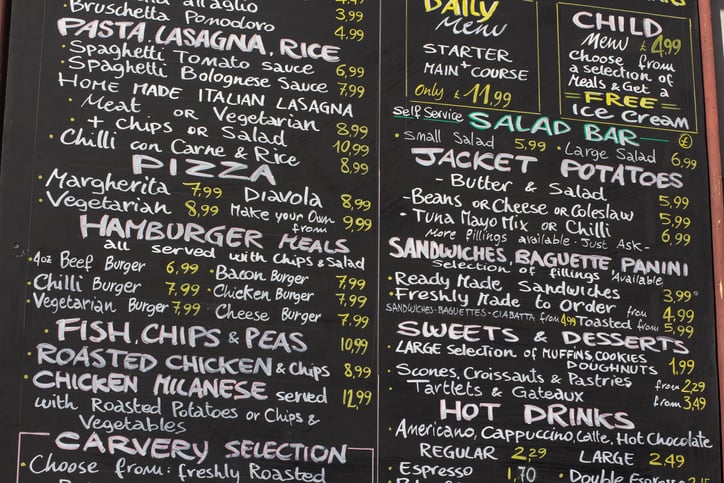 3,99
Bruschetta Pomodoro 4.99
PASTA, LASAGNA, RICE
• Spaghetti Tomato sauce 6,99
• Spaghetti Bolognese Sauce 7,99
HOME MADE ITALIAN LASAGNA
• Meat or Vegetarian 8,99
+ Chips or Salad 10,99
• Chilli con Carne & Rice 8,99
PIZZA
• Margherita 7,99 Diavola 8,99
• Vegetarian 8,99 Make your Own from 9,99
HAMBURGER MEALS
all served with Chips & Salad
• 4oz Beef Burger 6,99 • Bacon Burger 7,99
• Chilli Burger 7,99 • Chicken Burger 7,99
• Vegetarian Burger 7,99 Cheese Burger 7,99
• FISH, CHIPS & PEAS 10,99
• ROASTED CHICKEN & Chips 8,99
• CHICKEN MILANESE served 12,99
with Roasted Potatoes or Chips &
Vegetables
CARVERY SELECTION
• Choose from: freshly Roasted
DAILY
Menu
STARTER
+
MAIN COURSE
Only £ 11,99
CHILD
Menu £ 4,99
Choose from
a selection of
Meals & Get a
FREE
ICE CREAM
Self Service SALAD BAR £
• Small Salad 5,99 • Large Salad 6,99
JACKET POTATOES
- Butter & Salad 5,99
- Beans OR Cheese OR Coleslaw 5,99
- Tuna Mayo Mix or Chilli 6,99
More fillings available - Just Ask -
SANDWICHES, BAGUETTE, PANINI
Selection of fillings Available
• Ready Made Sandwiches 3,99
• Freshly Made to Order from 4,99
SANDWICHES-BAGUETTES-CIABATTA from 4,99 Toasted from 5,99
SWEETS & DESSERTS
• LARGE Selection of MUFFINS, COOKIES
DOUGHNUTS 1,99
• Scones, Croissants & Pastries from 2,29
• Tartlets & Gateaux from 3,49
HOT DRINKS
• Americano, Cappuccino, Latte, Hot Chocolate
REGULAR 2,29 LARGE 2,49
• Espresso 1,70 • Double Espresso